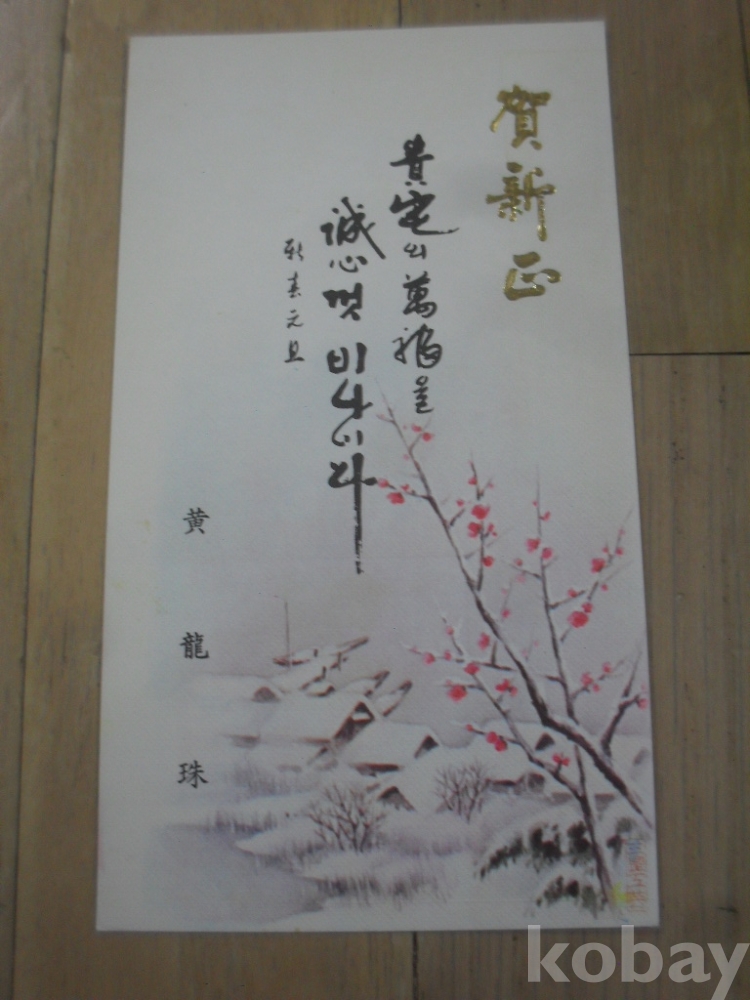 賀新正
貴宅의 萬福을
誠心껏 비나이다
新春元旦
黄龍珠
kobay